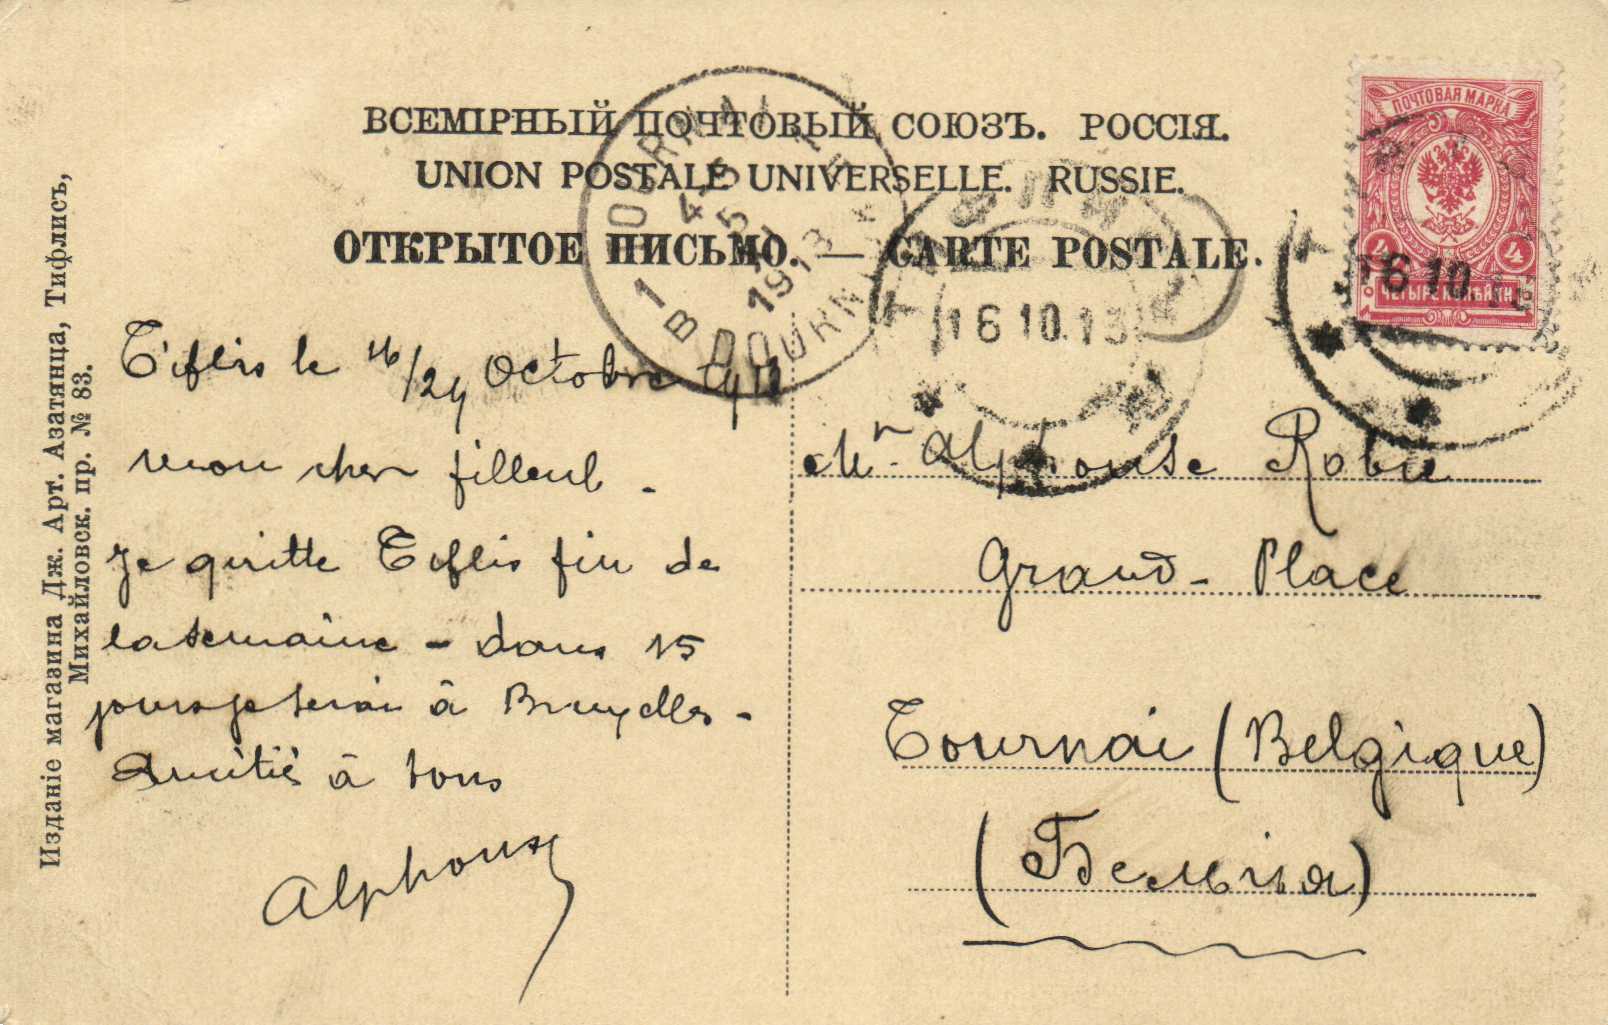 ВСЕМІРНЫЙ ПОЧТОВЫЙ СОЮЗЪ. РОССІЯ.
UNION POSTALE UNIVERSELLE. RUSSIE.
ОТКРЫТОЕ ПИСЬМО. — CARTE POSTALE.
ПОЧТОВАЯ МАРКА
4 4
ЧЕТЫРЕ КОП.
16.10.13
16 10.13
TOURNAI
1 B
DOORNIK
5
1913
Изданіе магазина Дж. Арт. Азатянца, Тифлисъ,
Михайловск. пр. № 83.
Tiflis le 16/29 Octobre 1913
mon cher filleul -
Je quitte Tiflis fin de
la semaine - dans 15
jours je serai à Bruxelles -
Amitiés à tous
Alphonse
Mr. Alphonse Robie
Grand-Place
Tournai (Belgique)
(Бельгия)